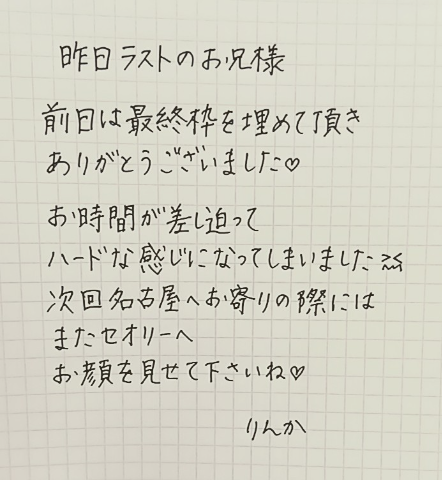 昨日ラストのお兄様
前日は最終枠を埋めて頂き
ありがとうございました♡
お時間が差し迫って
ハードな感じになってしまいました
次回名古屋へお寄りの際には
またセオリーへ
お顔を見せて下さいね♡
りんか